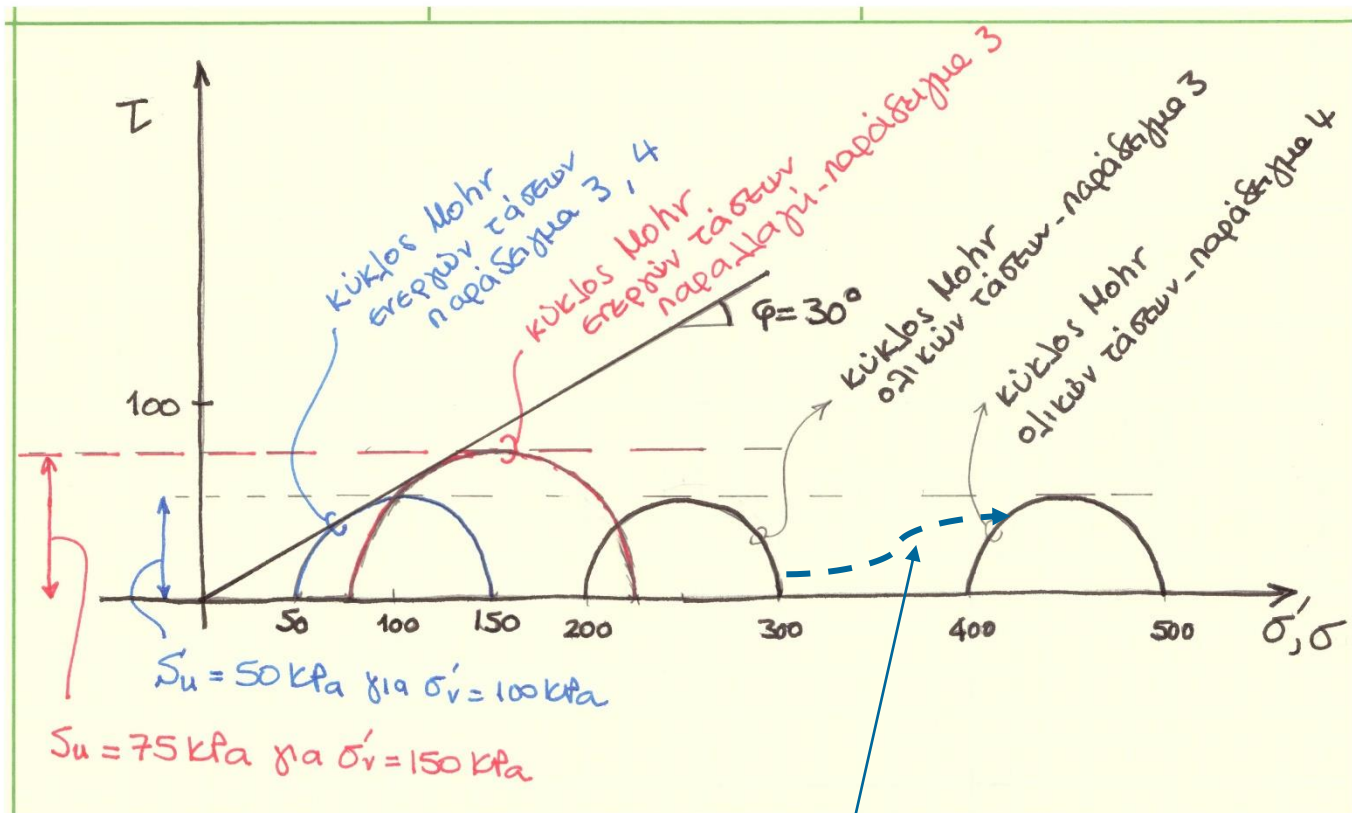 τ
κύκλος Mohr
ενεργών τάσεων
παράδειγμα 3, 4
κύκλος Mohr
ενεργών τάσεων
παραλλαγή-παράδειγμα 3
κύκλος Mohr
ολικών τάσεων-παράδειγμα 3
κύκλος Mohr
ολικών τάσεων-παράδειγμα 4
φ=30°
100
50 100 150 200 300 400 500
σ', σ
Su = 50 kPa για σ'v = 100 kPa
Su = 75 kPa για σ'v = 150 kPa